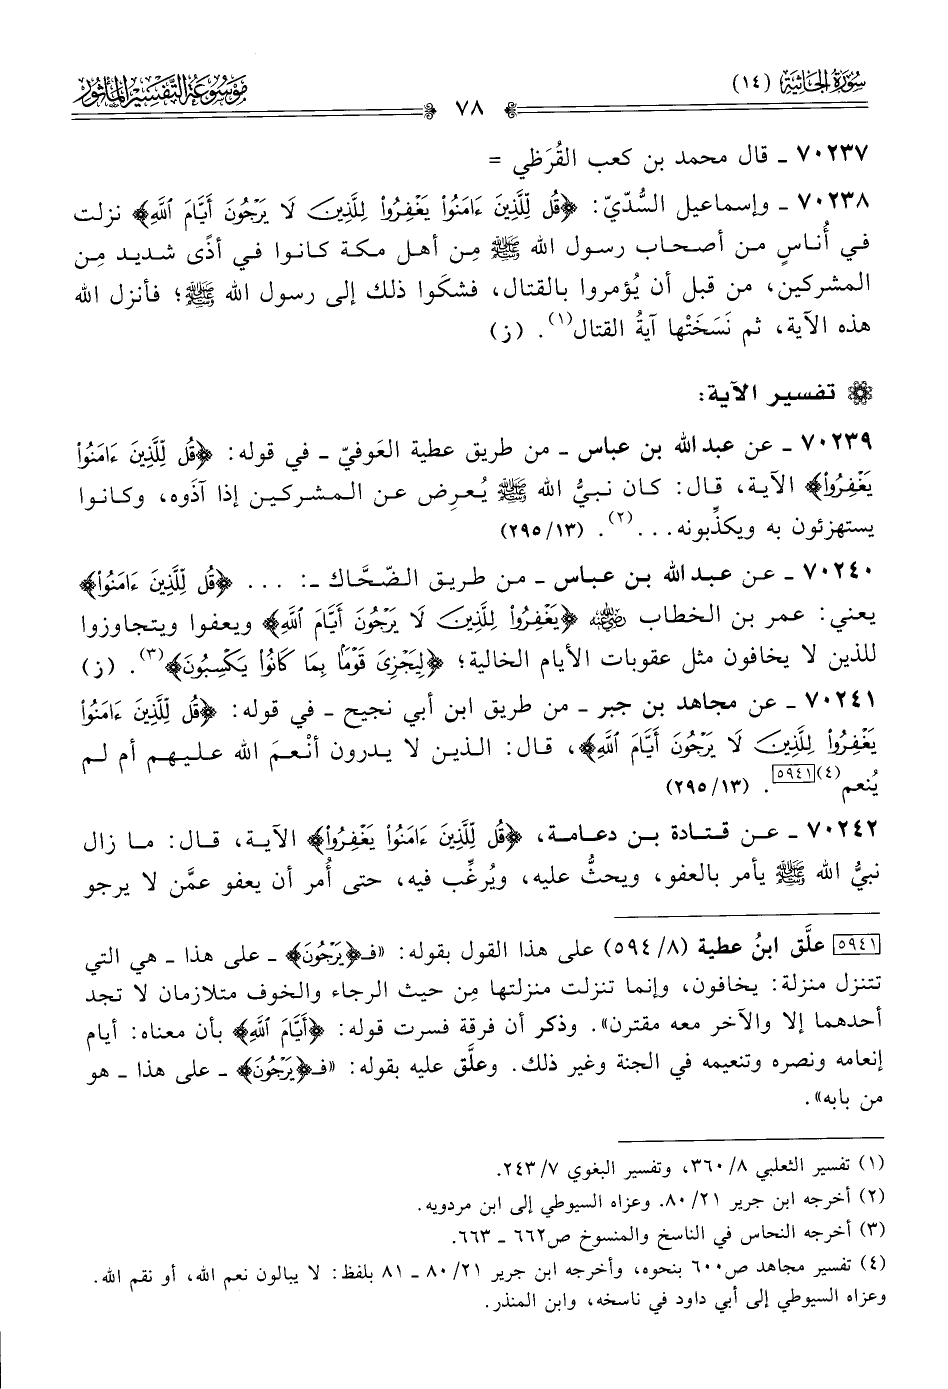 سُورَةُ الجَاثِيَة (١٤)
٧٨
مَوْسُوعَة التَّفْسِير المَأْثُور
٧٠٢٣٧ ـ قال محمد بن كعب القُرَظي =
٧٠٢٣٨ ـ وإسماعيل السُّدّيّ: ﴿قُل لِّلَّذِينَ ءَامَنُوا۟ يَغْفِرُوا۟ لِلَّذِينَ لَا يَرْجُونَ أَيَّامَ ٱللَّهِ﴾ نزلت
في أُناسٍ من أصحاب رسول الله ﷺ مِن أهل مكة كانوا في أذًى شديد مِن
المشركين، من قبل أن يُؤمروا بالقتال، فشكَوا ذلك إلى رسول الله ﷺ؛ فأنزل الله
هذه الآية، ثم نَسَخَتْها آيةُ القتال(١). (ز)
تفسير الآية:
٧٠٢٣٩ ـ عن عبد الله بن عباس ـ من طريق عطية العَوفيّ ـ في قوله: ﴿قُل لِّلَّذِينَ ءَامَنُوا۟
يَغْفِرُوا۟﴾ الآية، قال: كان نبيُّ الله ﷺ يُعرِض عن المشركين إذا آذَوه، وكانوا
يستهزئون به ويكذِّبونه...(٢). (١٣/ ٢٩٥)
٧٠٢٤٠ ـ عن عبد الله بن عباس ـ من طريق الضَّحَّاك ـ: ... ﴿قُل لِّلَّذِينَ ءَامَنُوا۟﴾
يعني: عمر بن الخطاب رضي الله عنه ﴿يَغْفِرُوا۟ لِلَّذِينَ لَا يَرْجُونَ أَيَّامَ ٱللَّهِ﴾ ويعفوا ويتجاوزوا
للذين لا يخافون مثل عقوبات الأيام الخالية؛ ﴿لِيَجْزِىَ قَوْمًۢا بِمَا كَانُوا۟ يَكْسِبُونَ﴾(٣). (ز)
٧٠٢٤١ ـ عن مجاهد بن جبر ـ من طريق ابن أبي نجيح ـ في قوله: ﴿قُل لِّلَّذِينَ ءَامَنُوا۟
يَغْفِرُوا۟ لِلَّذِينَ لَا يَرْجُونَ أَيَّامَ ٱللَّهِ﴾، قال: الذين لا يدرون أنْعمَ الله عليهم أم لم
يُنعم(٤)[٥٩٤١]. (١٣/ ٢٩٥)
٧٠٢٤٢ ـ عن قتادة بن دعامة، ﴿قُل لِّلَّذِينَ ءَامَنُوا۟ يَغْفِرُوا۟﴾ الآية، قال: ما زال
نبيُّ الله ﷺ يأمر بالعفو، ويحثُّ عليه، ويُرغِّب فيه، حتى أُمر أن يعفو عمَّن لا يرجو
[٥٩٤١] علَّق ابنُ عطية (٨/ ٥٩٤) على هذا القول بقوله: «فـ﴿يَرْجُونَ﴾ ـ على هذا ـ هي التي
تتنزل منزلة: يخافون، وإنما تنزلت منزلتها مِن حيث الرجاء والخوف متلازمان لا تجد
أحدهما إلا والآخر معه مقترن». وذكر أن فرقة فسرت قوله: ﴿أَيَّامَ ٱللَّهِ﴾ بأن معناه: أيام
إنعامه ونصره وتنعيمه في الجنة وغير ذلك. وعلَّق عليه بقوله: «فـ﴿يَرْجُونَ﴾ ـ على هذا ـ هو
من بابه».
(١) تفسير الثعلبي ٨/ ٣٦٠، وتفسير البغوي ٧/ ٢٤٣.
(٢) أخرجه ابن جرير ٢١/ ٨٠. وعزاه السيوطي إلى ابن مردويه.
(٣) أخرجه النحاس في الناسخ والمنسوخ ص٦٦٢ ـ ٦٦٣.
(٤) تفسير مجاهد ص٦٠٠ بنحوه، وأخرجه ابن جرير ٢١/ ٨٠ ـ ٨١ بلفظ: لا يبالون نعم الله، أو نقم الله.
وعزاه السيوطي إلى أبي داود في ناسخه، وابن المنذر.